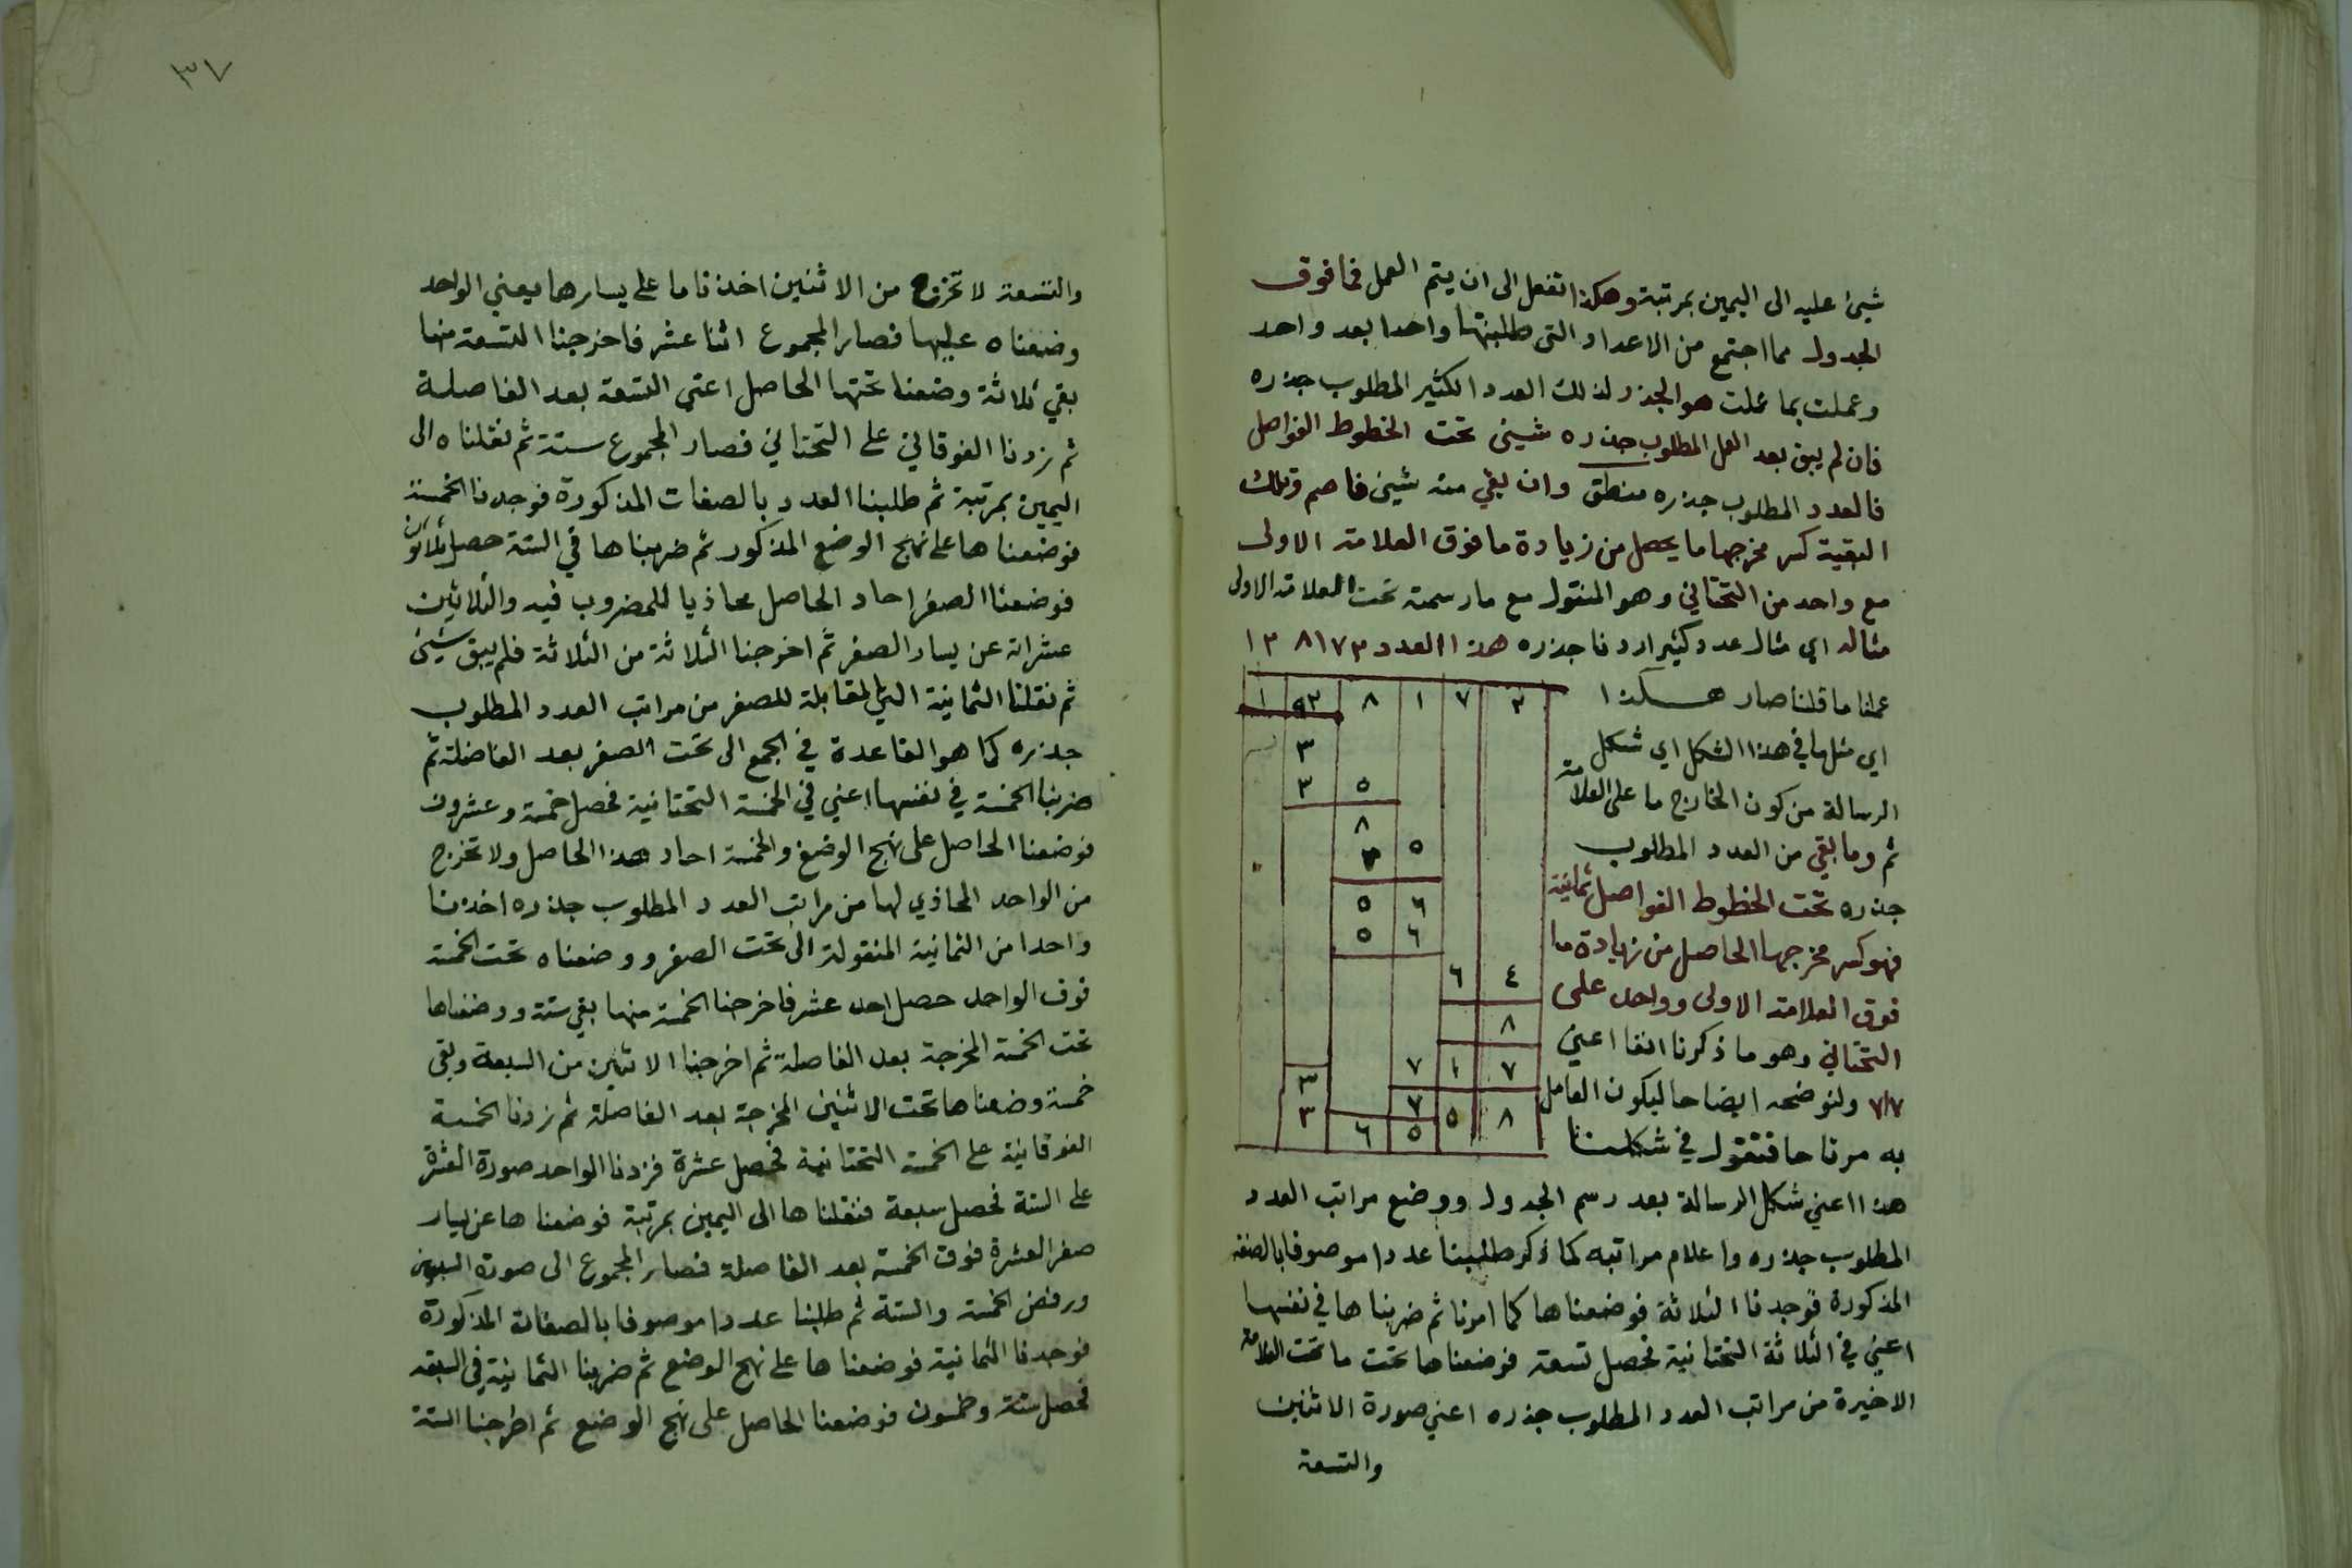 شيئ عليه الى اليمين بمرتبة وهكذا تفعل الى ان يتم العمل فما فوق
الجدول مما اجتمع من الاعداد التى طلبتها واحدا بعد واحد
وعملت بما عملت هو الجذر لذلك العدد الكثير المطلوب جذره
فان لم يبق بعد العمل المطلوب جذره شيئ تحت الخطوط الفواصل
فالعدد المطلوب جذره منطق وان بقي منه شيئ فاصم وتلك
البقية كسر مخرجها ما يحصل من زيادة ما فوق العلامة الاولى
مع واحد من التحتاني وهو المنقول مع ما رسمته تحت العلامة الاولى
مثاله اي مثال عدد كثير اردنا جذره هذا العدد ١٢٨١٧٣
عملنا ما قلنا صار هكذا
اي مثل ما في هذا الشكل اي شكل
الرسالة من كون الخارج ما على العلامة
ثم وما بقي من العدد المطلوب
جذره تحت الخطوط الفواصل ثمانية
فهو كسر مخرجها الحاصل من زيادة ما
فوق العلامة الاولى وواحد على
التحتاني وهو ما ذكرنا انفا اعني
٧١٧ ولنوضحه ايضاحا ليكون العامل
به مرتاحا فنقول في شكلنا
هذا اعني شكل الرسالة بعد رسم الجدول ووضع مراتب العدد
المطلوب جذره واعلام مراتبه كما ذكر طلبنا عددا موصوفا بالصفة
المذكورة فوجدنا الثلاثة فوضعناها كما امرنا ثم ضربناها في نفسها
اعني في الثلاثة التحتانية فحصل تسعة فوضعناها تحت ما تحت العلامة
الاخيرة من مراتب العدد المطلوب جذره اعني صورة الاثنين
والتسعة
٣٧
والتسعة لا تخرج من الاثنين اخذنا ما على يسارها يعني الواحد
وضعناه عليها فصار المجموع اثنا عشر فاخرجنا التسعة منها
بقي ثلاثة وضعنا تحتها الحاصل اعني التسعة بعد الفاصلة
ثم زدنا الفوقاني على التحتاني فصار المجموع ستة ثم نقلناه الى
اليمين بمرتبة ثم طلبنا العدد بالصفات المذكورة فوجدنا الخمسة
فوضعناها على نهج الوضع المذكور ثم ضربناها في الستة حصل ثلاثون
فوضعنا الصفر احاد الحاصل محاذيا للمضروب فيه والثلاثين
عشراته عن يسار الصفر ثم اخرجنا الثلاثة من الثلاثة فلم يبق شيئ
ثم نقلنا الثمانية التي المقابلة للصفر من مراتب العدد المطلوب
جذره كما هو القاعدة في الجمع الى تحت الصفر بعد الفاصلة ثم
ضربنا الخمسة في نفسها اعني في الخمسة التحتانية فحصل خمسة وعشرون
فوضعنا الحاصل على نهج الوضع والخمسة احاد هذا الحاصل ولا تخرج
من الواحد المحاذي لها من مراتب العدد المطلوب جذره اخذنا
واحدا من الثمانية المنقولة الى تحت الصفر ووضعناه تحت الخمسة
فوق الواحد حصل احد عشر فاخرجنا الخمسة منها بقي ستة ووضعناها
تحت الخمسة المخرجة بعد الفاصلة ثم اخرجنا الاثنين من السبعة وبقي
خمسة وضعناها تحت الاثنين المخرجة بعد الفاصلة ثم زدنا الخمسة
الفوقانية على الخمسة التحتانية فحصل عشرة فزدنا الواحد صورة العشرة
على الستة فحصل سبعة فنقلناها الى اليمين بمرتبة فوضعناها عن يسار
صفر العشرة فوق الخمسة بعد الفاصلة فصار المجموع الى صورة السبعين
ورفض الخمسة والستة ثم طلبنا عددا موصوفا بالصفات المذكورة
فوجدنا الثمانية فوضعناها على نهج الوضع ثم ضربنا الثمانية في السبعة
فحصل ستة وخمسون فوضعنا الحاصل على نهج الوضع ثم اخرجنا الستة